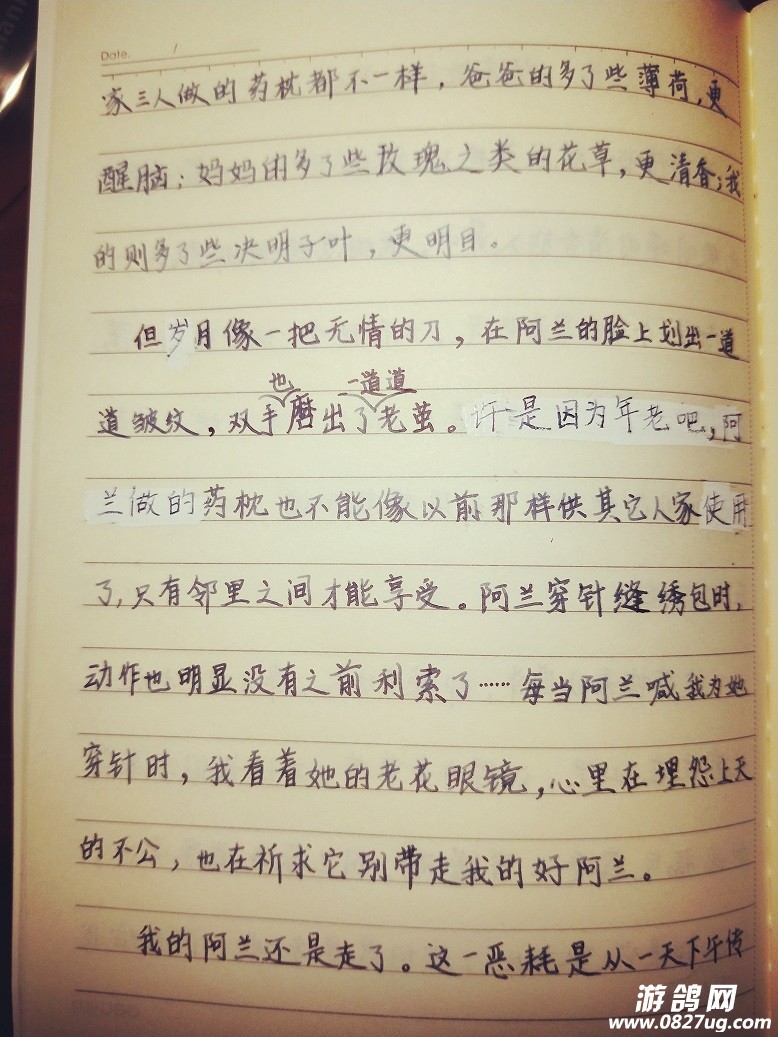 Date. /
家三人做的药枕都不一样，爸爸的多了些薄荷，更
醒脑；妈妈的多了些玫瑰之类的花草，更清香；我
的则多了些决明子叶，更明目。
但岁月像一把无情的刀，在阿兰的脸上划出一道
也 一道道
道皱纹，双手磨出了老茧。许是因为年老吧，阿
兰做的药枕也不能像以前那样供其它人家使用
了，只有邻里之间才能享受。阿兰穿针缝绣包时，
动作也明显没有之前利索了……每当阿兰喊我为她
穿针时，我看着她的老花眼镜，心里在埋怨上天
的不公，也在祈求它别带走我的好阿兰。
我的阿兰还是走了。这一恶耗是从一天下午传
游鸽网
www.0827ug.com